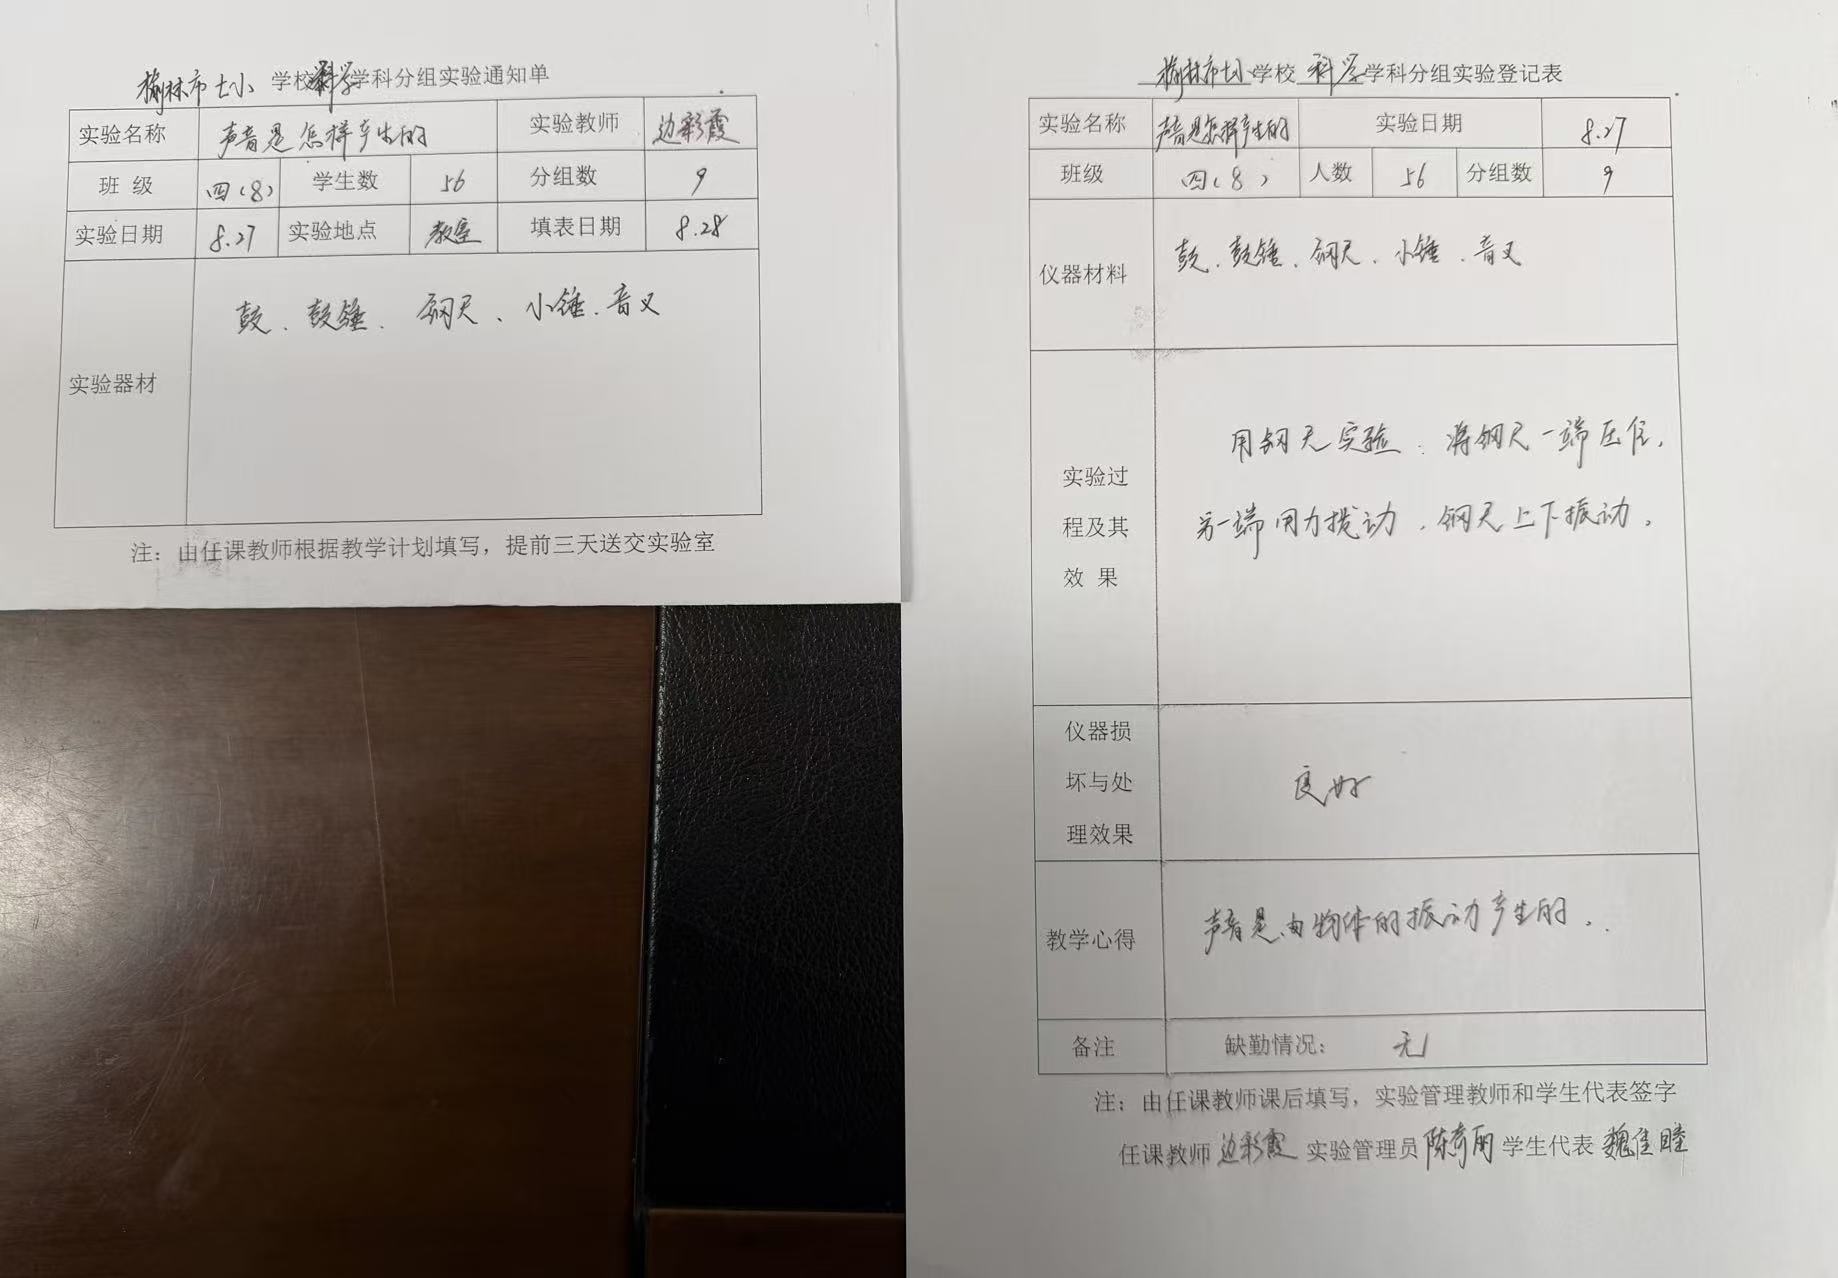 榆林市七小 学校 科学 学科分组实验通知单
实验名称 声音是怎样产生的 实验教师 边彩霞
班 级 四(8) 学生数 56 分组数 9
实验日期 8.27 实验地点 教室 填表日期 8.28
实验器材 鼓、鼓锤、钢尺、小锤、音叉
注：由任课教师根据教学计划填写，提前三天送交实验室
榆林市七小 学校 科学 学科分组实验登记表
实验名称 声音是怎样产生的 实验日期 8.27
班级 四(8) 人数 56 分组数 9
仪器材料 鼓、鼓锤、钢尺、小锤、音叉
实验过
程及其
效 果
用钢尺实验：将钢尺一端压住，
另一端用力拨动，钢尺上下振动。
仪器损
坏与处
理效果
良好
教学心得 声音是由物体的振动产生的。
备注 缺勤情况： 无
注：由任课教师课后填写，实验管理教师和学生代表签字
任课教师 边彩霞 实验管理员 陈奇丽 学生代表 魏佳睦